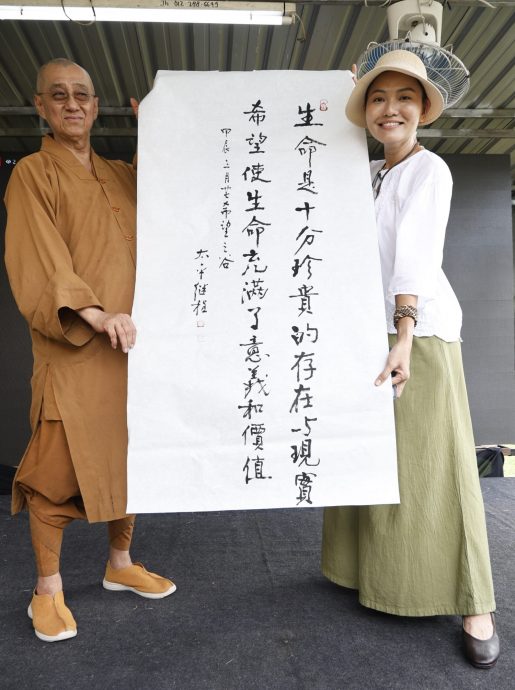 生命是十分珍貴的存在与現實
希望使生命充滿了意義和價值
甲辰三月廿七希望之谷
太平继程